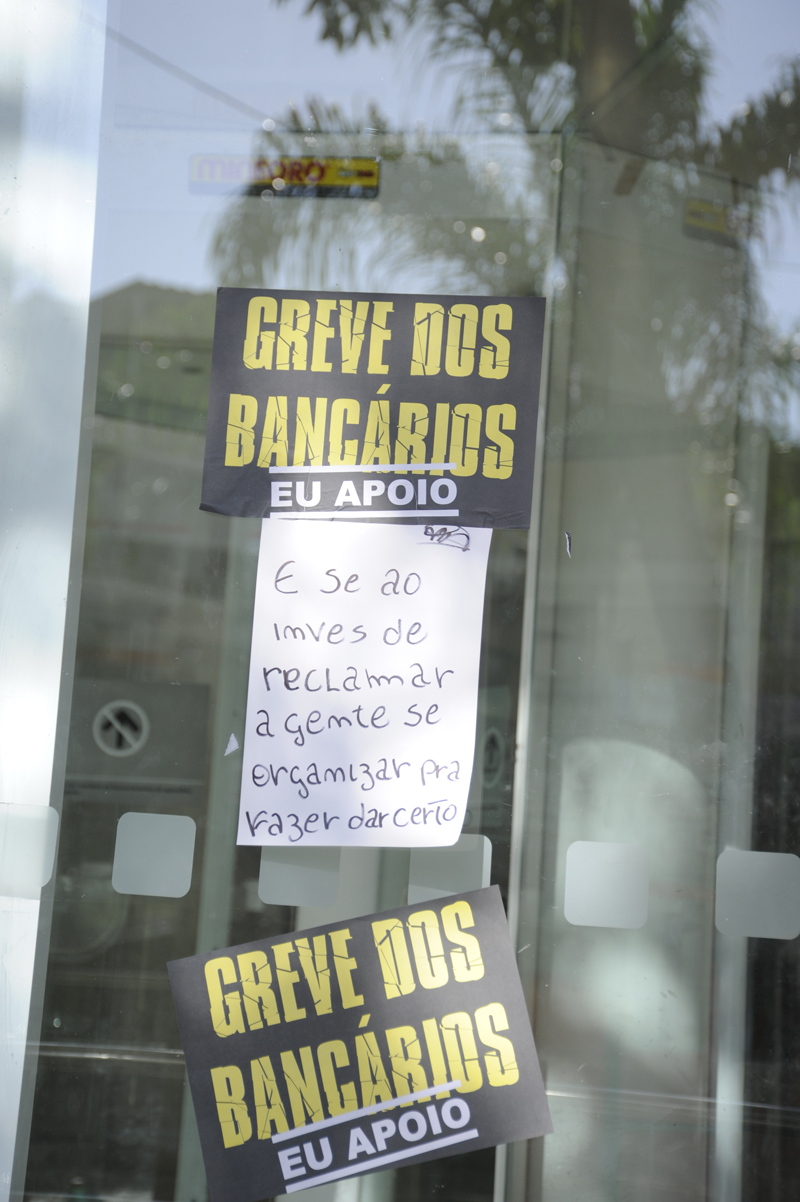 GREVE DOS
BANCÁRIOS
EU APOIO
E se ao
imves de
reclamar
a gente se
organizar pra
fazer dar certo
GREVE DOS
BANCÁRIOS
EU APOIO